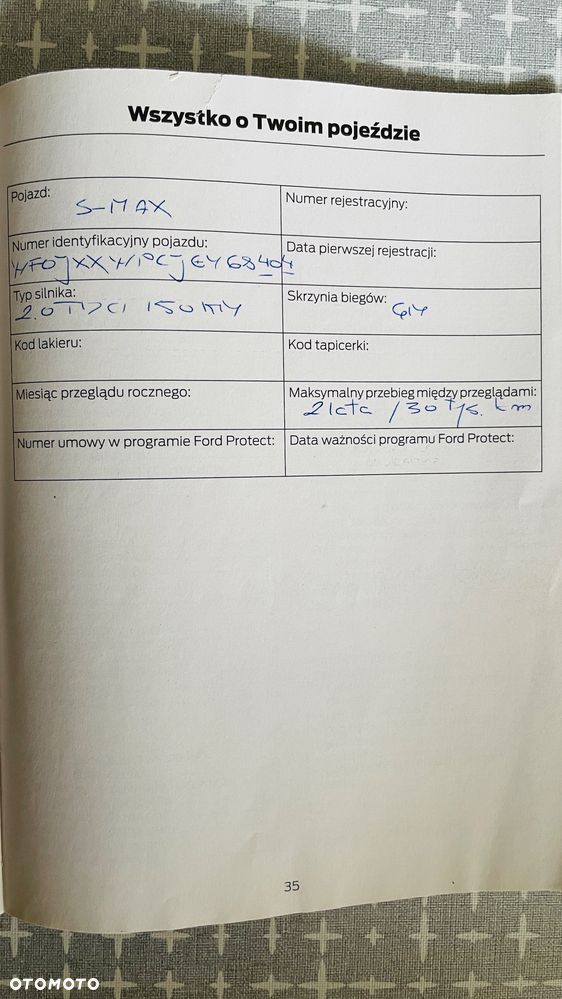 Wszystko o Twoim pojeździe
Pojazd:
S-MAX
Numer rejestracyjny:
Numer identyfikacyjny pojazdu:
WF0JXXWPCJEY68404
Data pierwszej rejestracji:
Typ silnika:
2.0 TDCI 150 KM
Skrzynia biegów:
Kod lakieru:
Kod tapicerki:
Miesiąc przeglądu rocznego:
Maksymalny przebieg między przeglądami:
2 lata / 30 tys. km
Numer umowy w programie Ford Protect:
Data ważności programu Ford Protect:
35
OTOMOTO